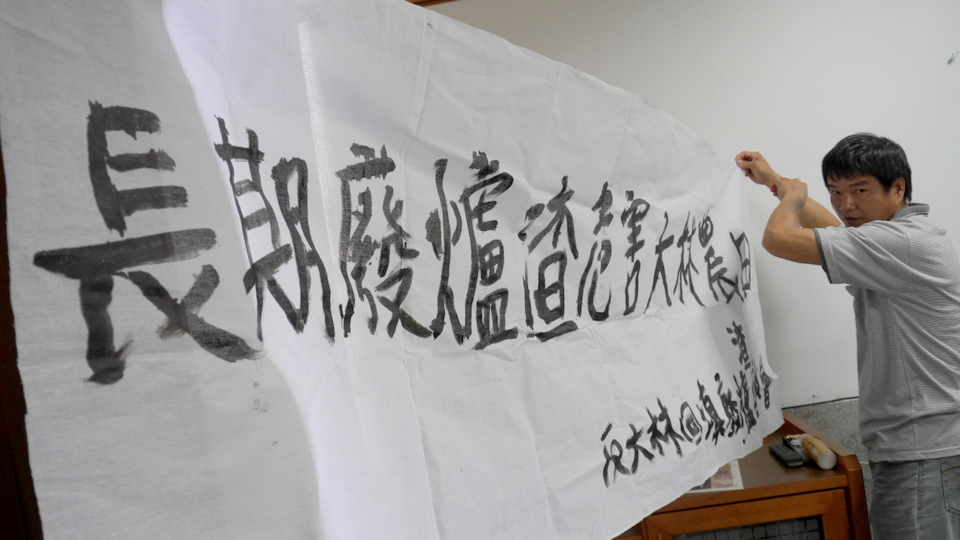 長期廢爐渣危害大林農田
反大林回填廢爐渣會